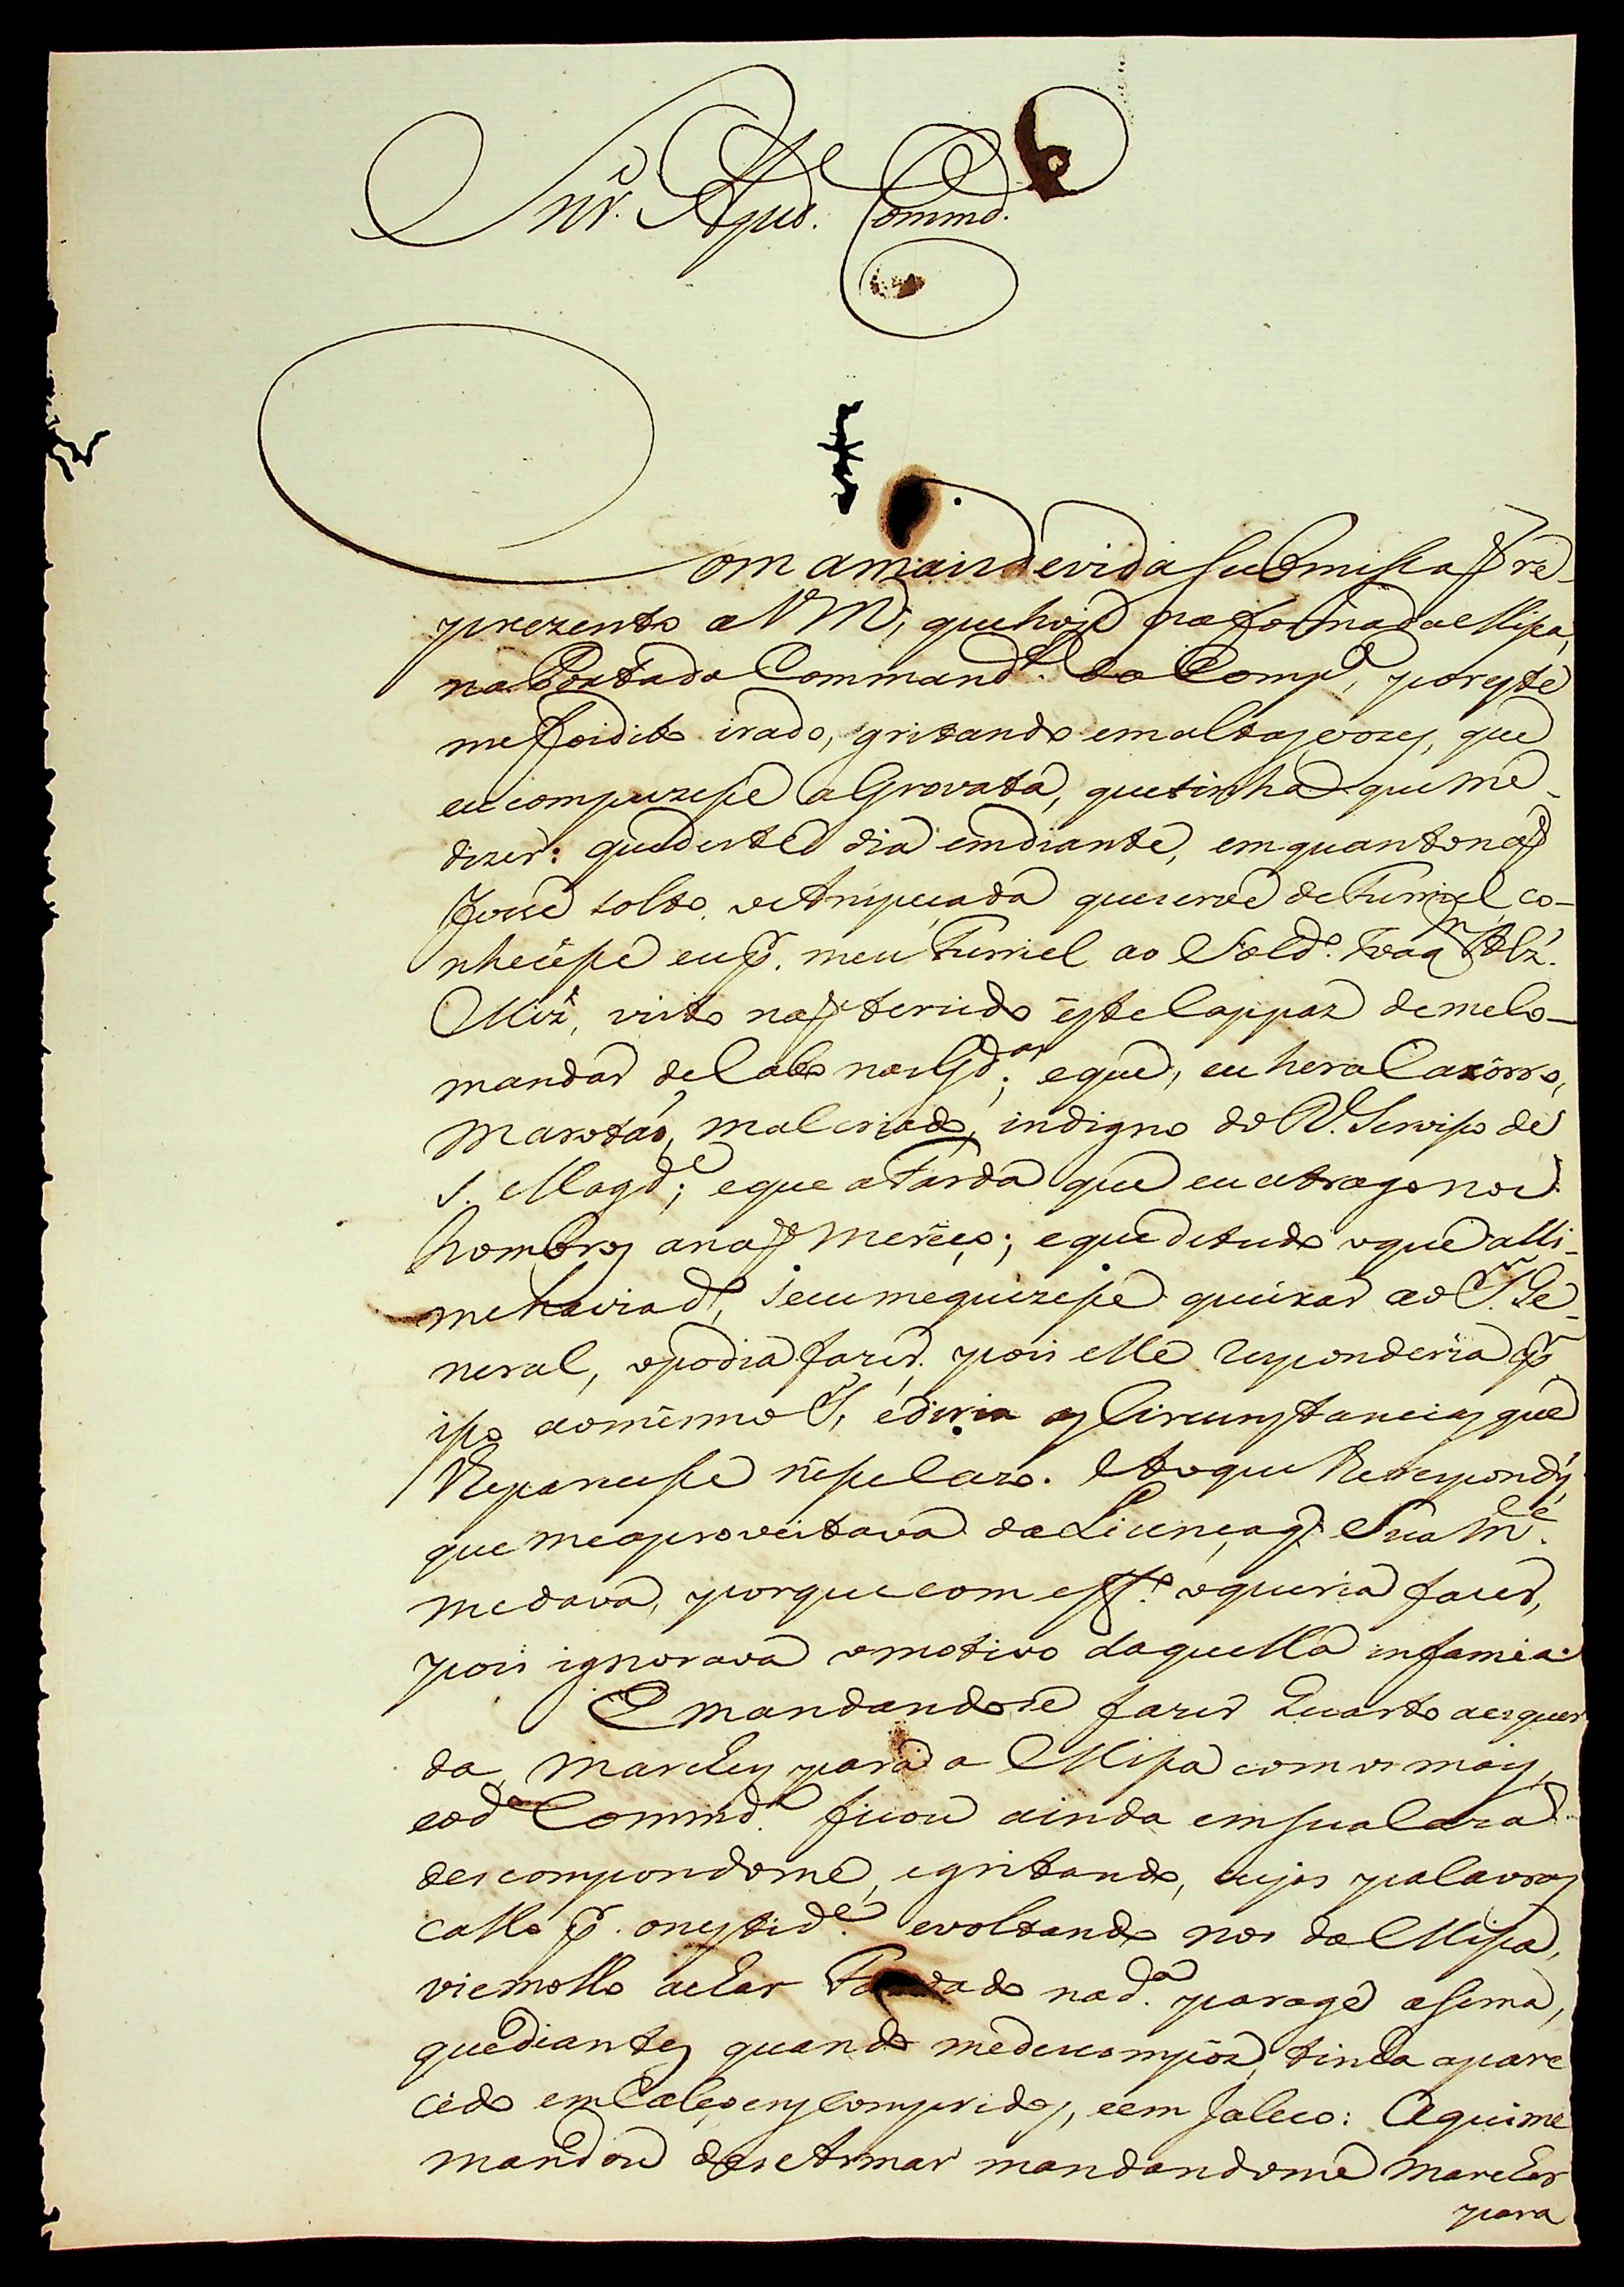 Snr. Ajud.e Commd.e
Com amais devida submissaõ re-
prezento a VM.ce, que hoje na forma da Missa,
na Porta do Command.e da Comp.a, por este
me foi dito irado, gritando em altas vozes, que
eu compuzesse a Gravata, que tinha que me-
dizer: que deste dia em diante, em quanto naõ
fosse solto o Anspeçada que serve de Furriel, co-
nhecesse eu p.r meu Furriel ao Sold.o Joaq.m Alz.
Miz, visto naõ ter sido este Cappaz de melo-
mandar de Cabo nas Gd.as; e que, eu hera Cazorro,
Marotaõ, mal criado, indigno do R. Serviso de
S. Magd.e; e que a Farda que eu atrago nos
hombros anaõ mereço; e que de tudo o que alli-
me havia d.o, se eu me quizesse queixar ao S.r Ge-
neral, o podia fazer, pois elle responderia p.r
isso ao mesmo S.r, e diria as Circunstancias que
lhe parecesse nesse cazo. Ao que lhe respondÿ,
que me aproveitava da Licença q. Sua M.ce
me dava, porque com eff.o o queria fazer,
pois ignorava o motivo daquella infamia.
E mandandose fazer Quarto aesquer
da, marchey para a Missa com os mais,
e o d.o Commd.e ficou ainda em sua Caza
descompondome, e gritando, cujas palavras
callo p.r onestid.e e voltando nos da Missa,
viemollo achar Fardado na d.a parage asima,
que d'antes quando me descompôz, tinha apare
cido em Calções compridos, e em Jaleco: Aqui me
mandou des Armar mandandome Marchar
para